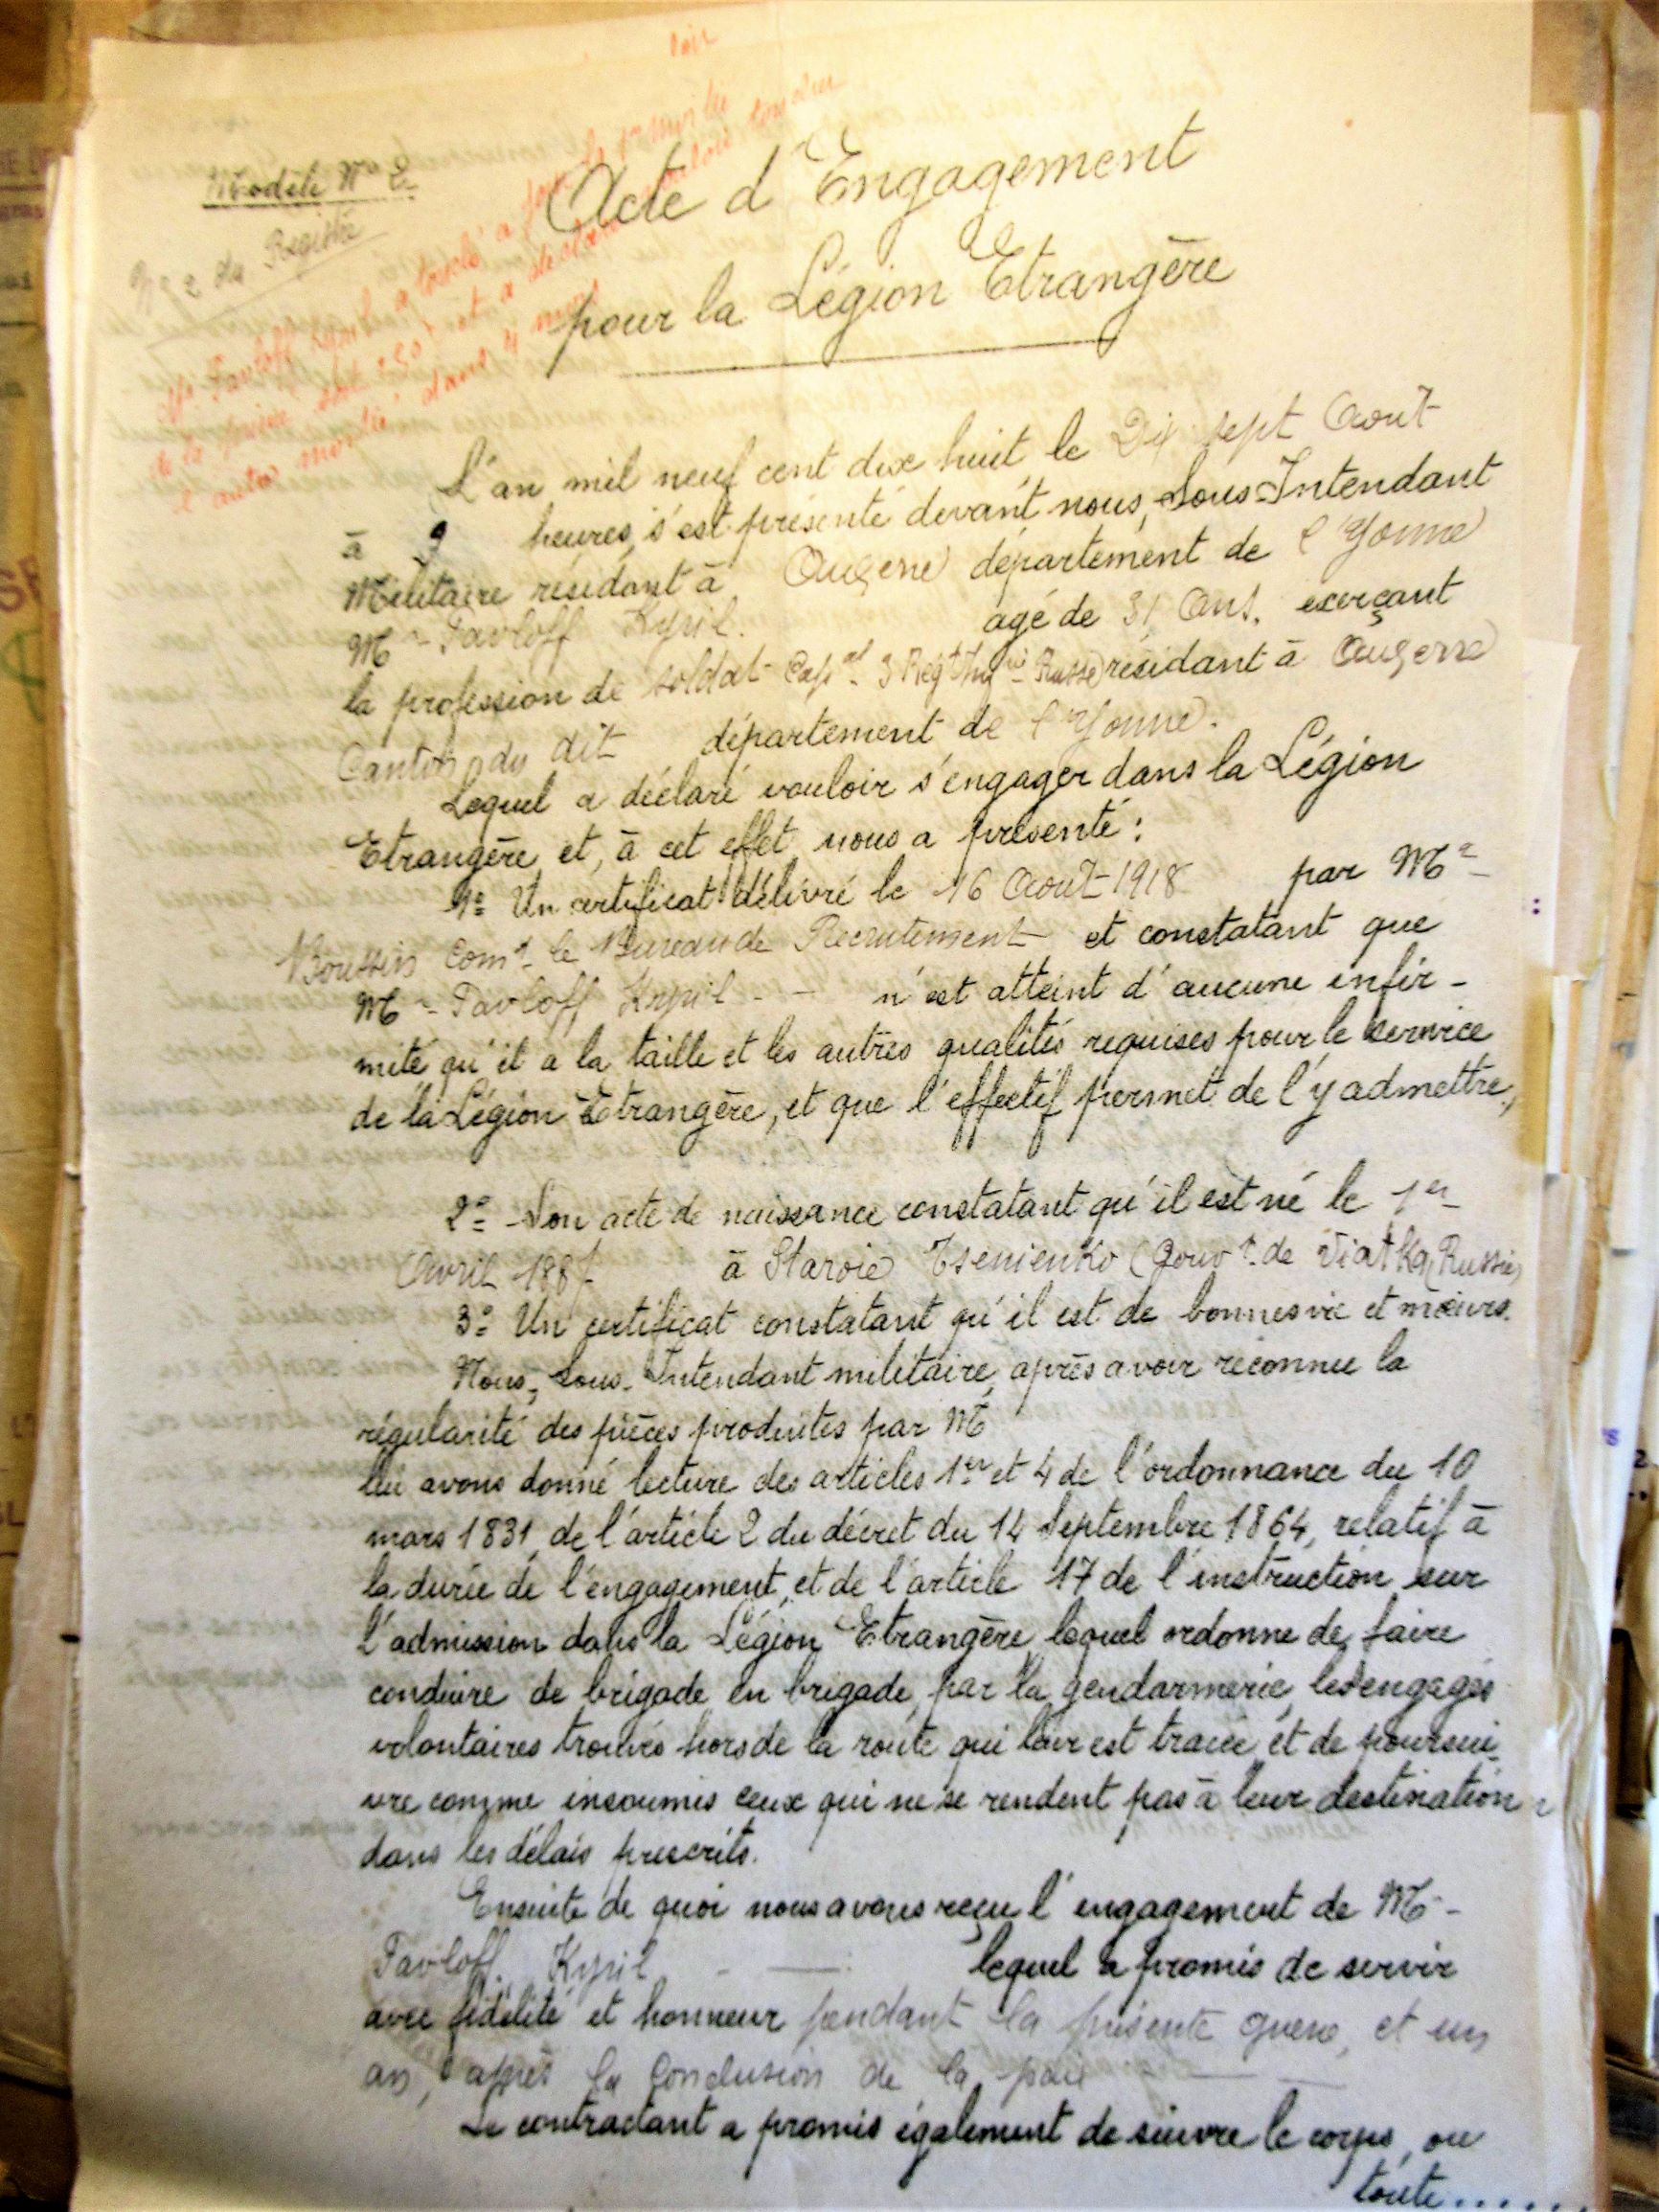 Modèle Nº 2
Nº 2 du Registre
Acte d'Engagement
pour la Légion Etrangère
Mr Pavloff Kyril a touché a
de la prime soit 250 f et a déclaré
l'autre moitié dans 4 mois
L'an mil neuf cent dix huit, le Dix sept Aout
à 9 heures, s'est présenté devant nous, Sous-Intendant
Militaire résidant à Auxerre département de l'Yonne
Mr Pavloff Kyril. agé de 31 Ans, exerçant
la profession de soldat Capal 3 Regt Russe résidant à Auxerre
Canton du dit département de l'Yonne.
Lequel a déclaré vouloir s'engager dans la Légion
Etrangère et, à cet effet nous a présenté :
1º Un certificat délivré le 16 Aout 1918 par Mr
Boussin Comt le Bureau de Recrutement et constatant que
Mr Pavloff Kyril - - n'est atteint d'aucune infir-
mité qu'il a la taille et les autres qualités requises pour le service
de la Légion Etrangère, et que l'effectif permet de l'y admettre,
2º Son acte de naissance constatant qu'il est né le 1er
Avril 1887 à Staroie Tsenienko (Gouvt de Viatka, Russie)
3º Un certificat constatant qu'il est de bonnes vie et mœurs.
Nous, Sous-Intendant militaire, après avoir reconnu la
régularité des pièces produites par M
lui avons donné lecture des articles 1er et 4 de l'ordonnance du 10
mars 1831, de l'article 2 du décret du 14 Septembre 1864, relatif à
la durée de l'engagement, et de l'article 17 de l'instruction sur
l'admission dans la Légion Etrangère lequel ordonne de faire
conduire de brigade en brigade, par la gendarmerie, les engagés
volontaires trouvés hors de la route qui leur est tracée et de poursui-
vre comme insoumis ceux qui ne se rendent pas à leur destination
dans les délais prescrits.
Ensuite de quoi nous avons reçu l'engagement de Mr
Pavloff Kyril - — lequel a promis de servir
avec fidélité et honneur pendant la présente guerre, et un
an, après la Conclusion de la paix — —
Le contractant a promis également de suivre le corps, ou
toute.....